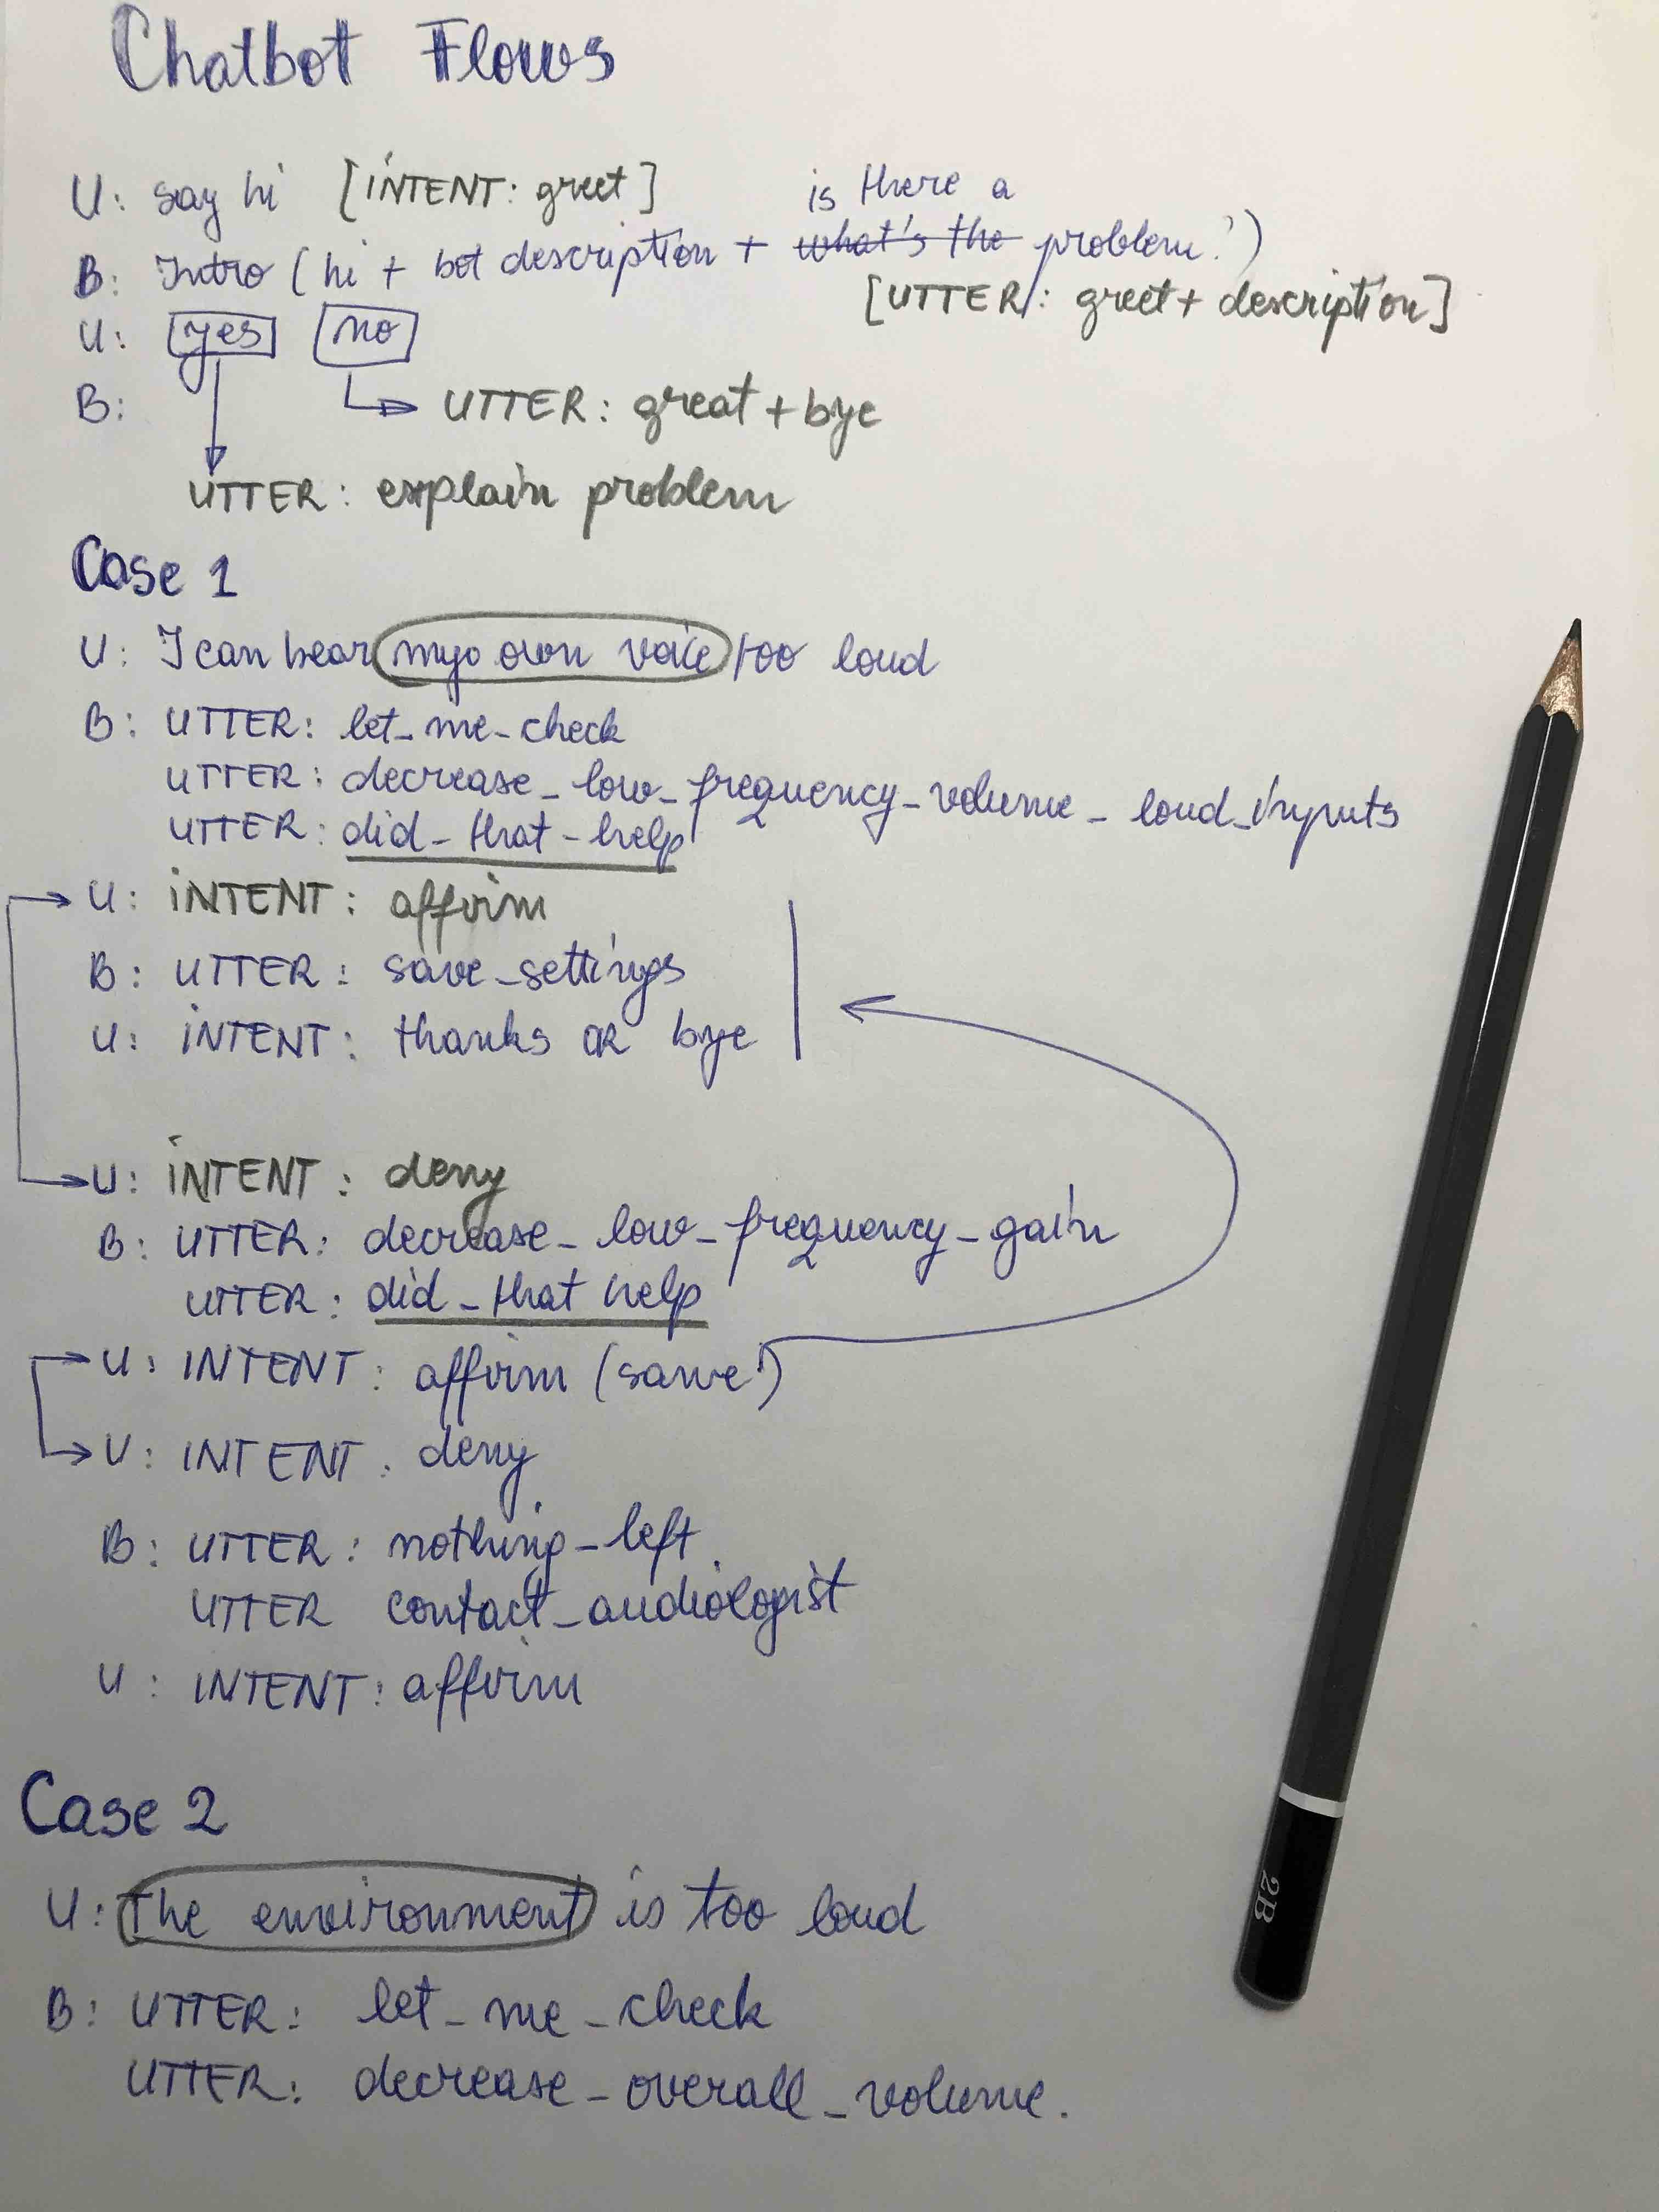 Chatbot Flows
U: say hi [INTENT: greet]
is there a
B: Intro (hi + bot description + what's the problem?)
[UTTER: greet + description]
U: yes no
B: UTTER: great + bye
UTTER: explain problem
Case 1
U: I can hear my own voice too loud
B: UTTER: let_me_check
UTTER: decrease_low_frequency_volume_loud_inputs
UTTER: did_that_help
U: INTENT: affirm
B: UTTER: save_settings
U: INTENT: thanks OR bye
U: INTENT: deny
B: UTTER: decrease_low_frequency_gain
UTTER: did_that help
U: INTENT: affirm (same!)
U: INTENT: deny
B: UTTER: nothing_left
UTTER contact_audiologist
U: INTENT: affirm
Case 2
U: The environment is too loud
B: UTTER: let_me_check
UTTER: decrease_overall_volume.
2B